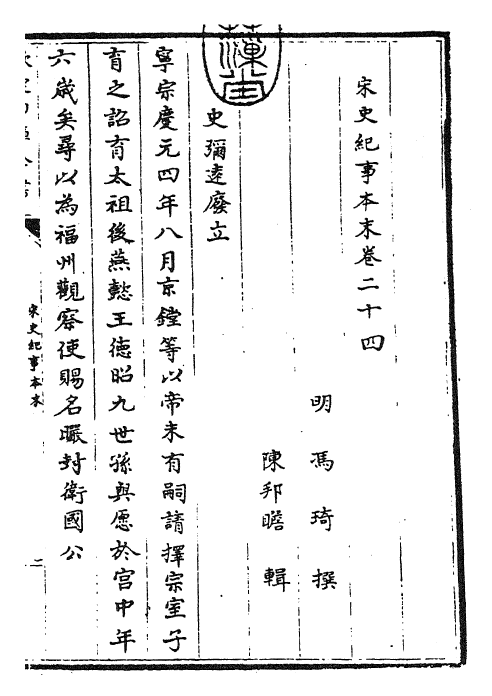 宋史紀事本末卷二十四
明 馮琦 撰
陳邦瞻 輯
史彌逺廢立
寧宗慶元四年八月京鏜等以帝未有嗣請擇宗室子
育之詔育太祖後燕懿王徳昭九世孫與愿於宫中年
六歳矣尋以為福州觀察使賜名㬎封衛國公
宋史紀事本末